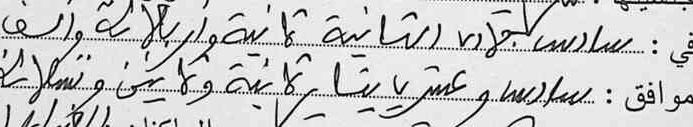 في : سادس جمادى الثانية ثمانية وأربعمائة وألف
موافق : سادس وعشرين يناير ثمانية وثمانين وتسعمائة